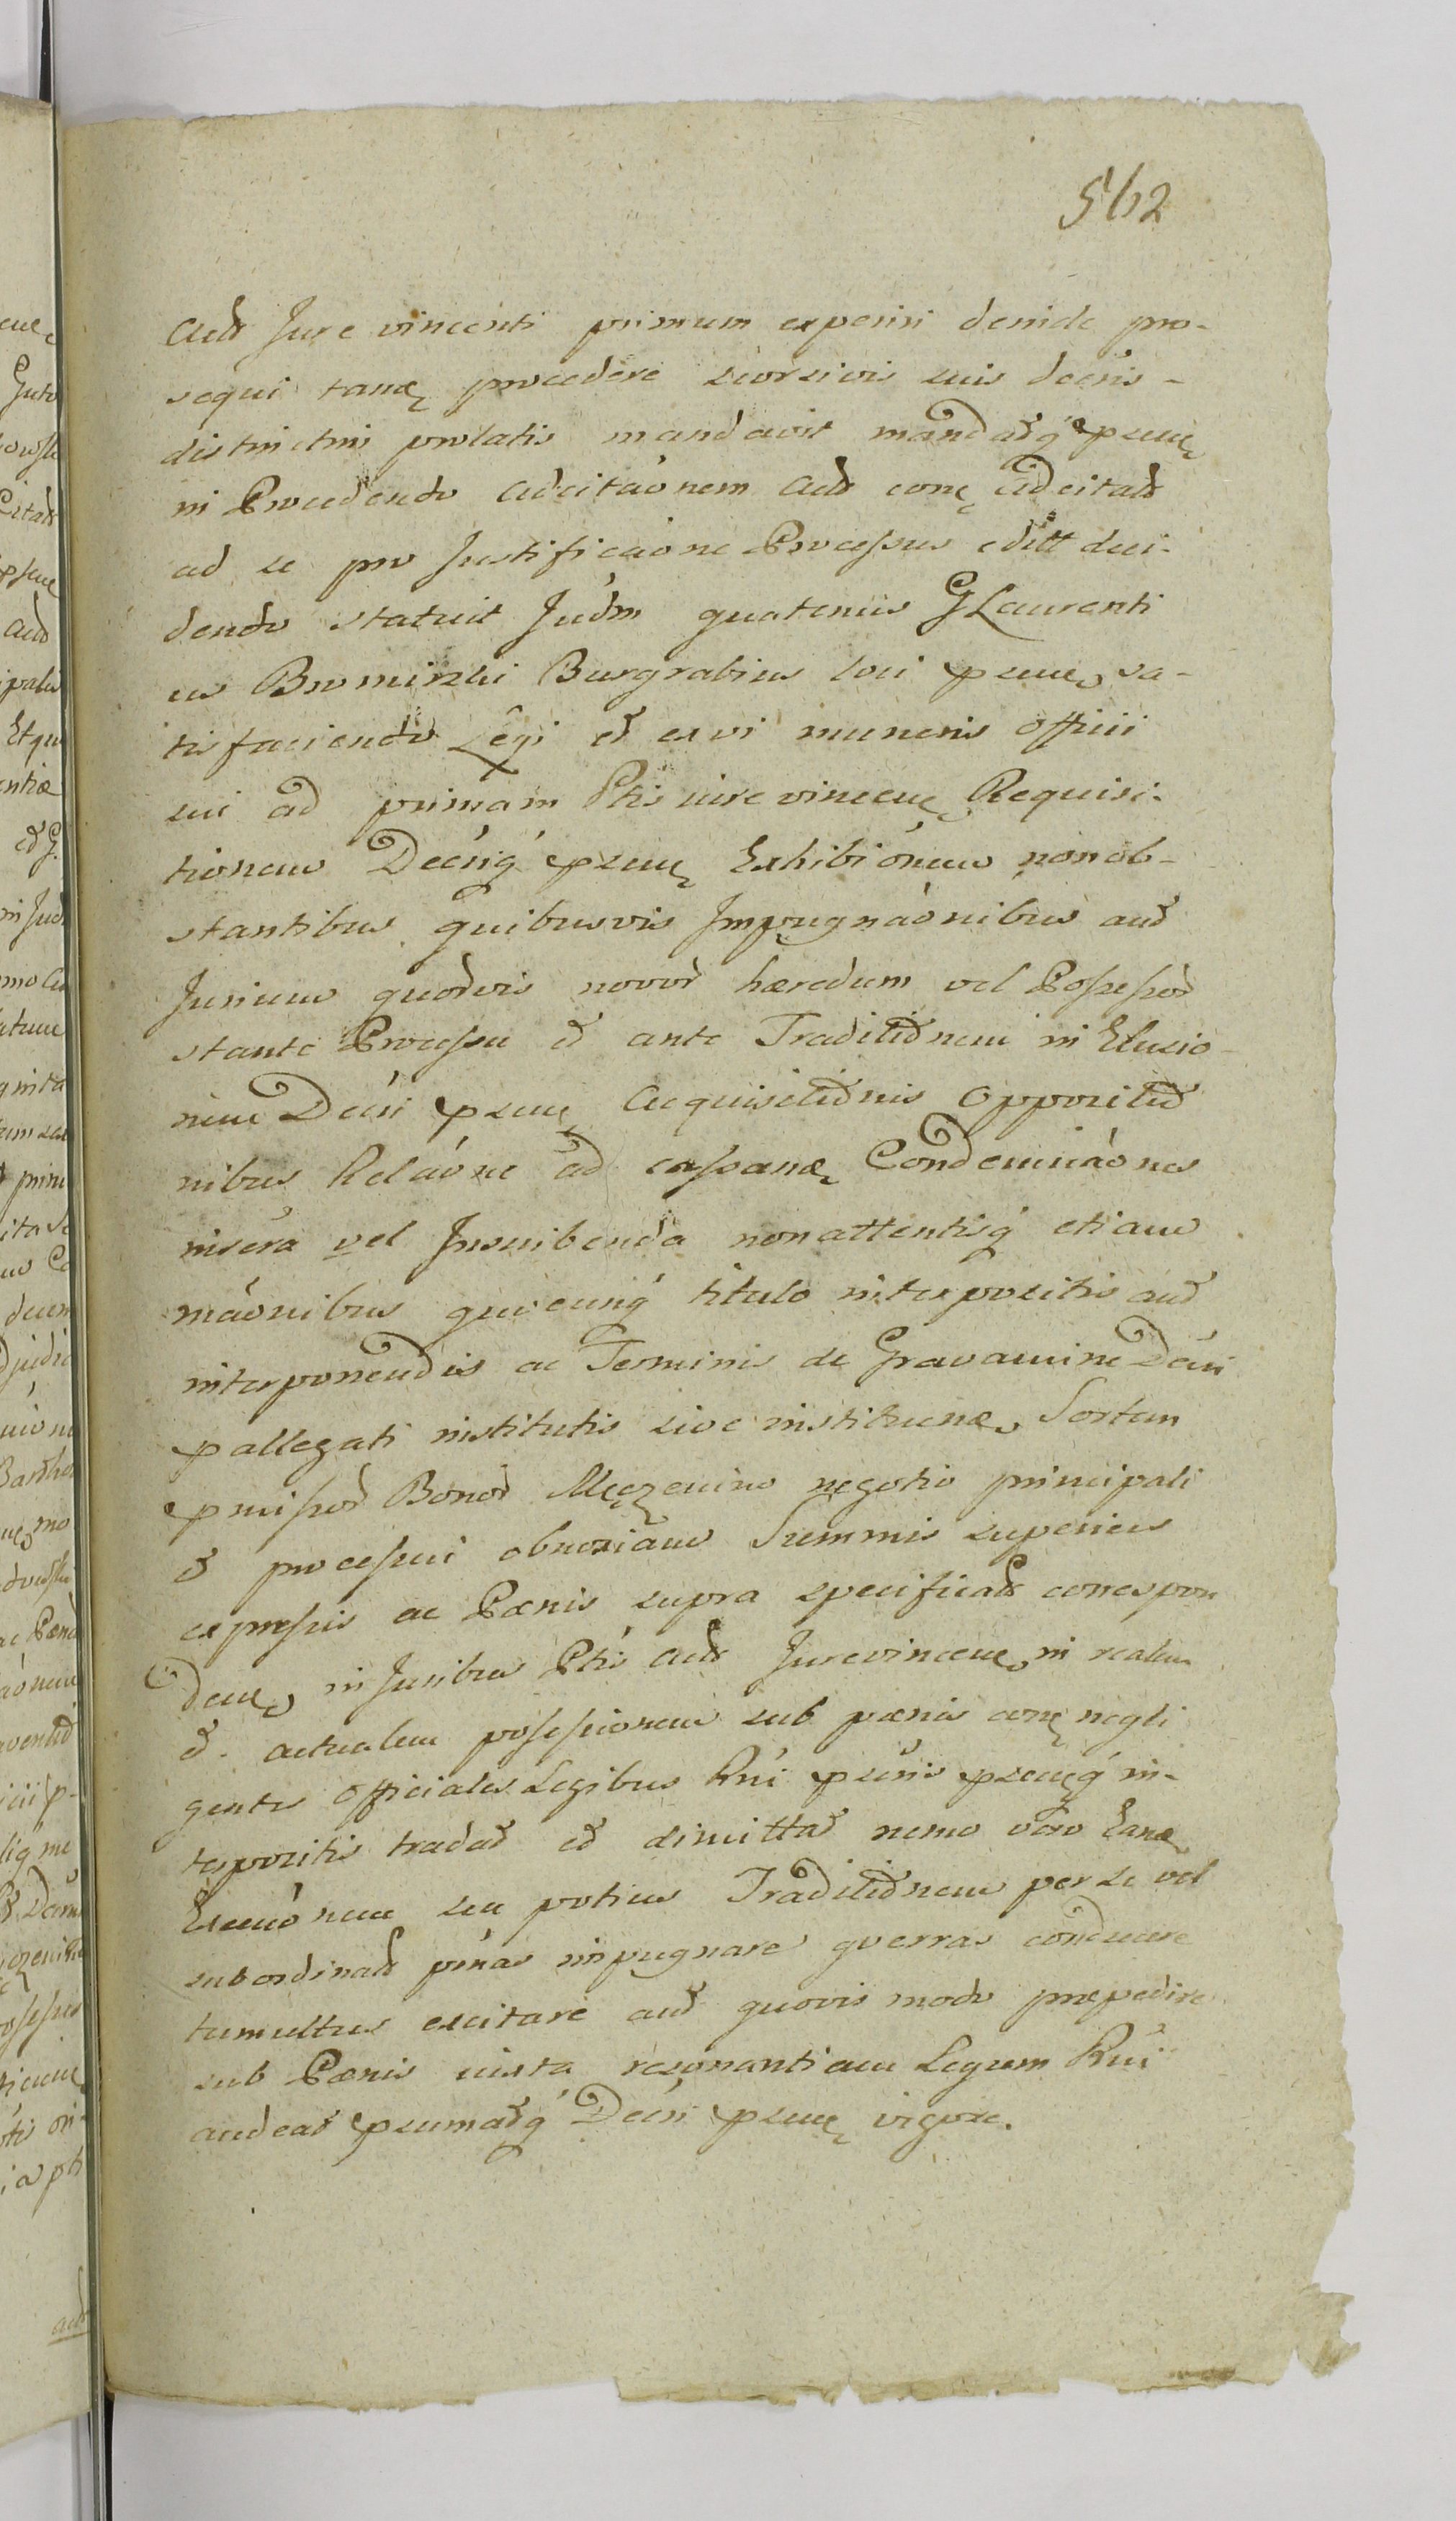 562
Actr Jure vincenti primum experiri deinde pro-
sequi tanq procedere seorsivis suis decris-
distinctim prolatis mandavit mandatq psent
in Procedendo Adcitaonem Actr con Adcitatr
ad se pro Justificaone Processus editt deci-
dendo statuit Judm quatenus G Laurenti
us Bromirski Burgrabius loci psens sa-
tisfaciendo Legi et ex vi muneris officii
sui ad primam Ptis jure vincen Requisi-
tionem Decriq psen Exhibionem non ob-
stantibus quibusvis Impugnaonibus aut
Jurium quorvis novor hæredum vel Possessor
stante Processu et ante Traditionem in Elusio-
nem Decri psen Acquisitionis Oppositio
nibus Relaone ad cassan Condemnaones
inserta vel Inscribenda non attentisq etiam
maonibus quocunq titulo interpositis aut
interponendis ac Terminis de Gravamine Decri
pallegati institutis sive instituen Sortem
pmissor Bonor Męczenino negotio principali
et processui obnoxiam Summis superius
expressis ac Pænis supra specificatr correspon
den in Juribus Ptis Actr Jurevincen in realem
et actualem possessionem sub pænis con negli
gentes officiales Legibus Rni psrtis psenq in-
terpositis tradat et dimittat nemo vero Ean
Exeuonem seu potius Traditionem per se vel
subordinatr pnas impugnare guerras conducere
tumultus excitare aut quovis modo præpedire
sub Pænis iuxta resonantiam Legum Rni
audeat psumatq Decri psen vigore.